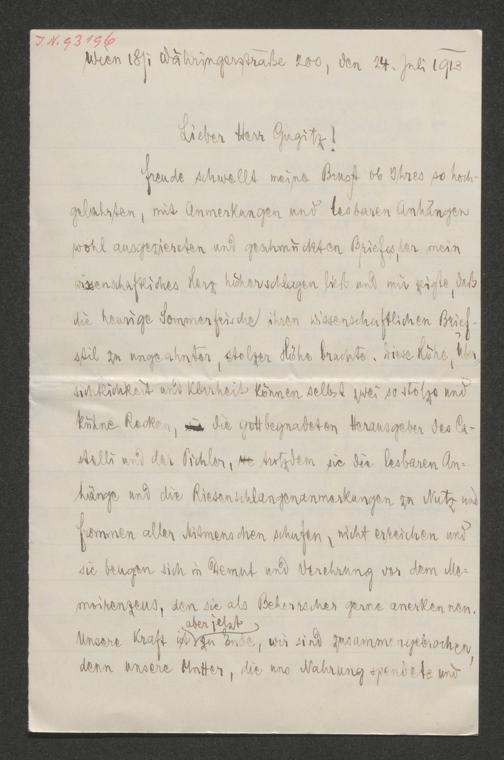 J.N. 93196
Wien 18/1 Währingerstraße 200, den 24. Juli 1913
Lieber Herr Gugitz!
Freude schwellt meine Brust ob Ihres so hoch-
gelahrten, mit Anmerkungen und lesbaren Anhängen
wohl ausgeziereten und geschmückten Briefes, der mein
wissenschaftliches Herz höherschlagen ließ und mir zeigte, daß
die heurige Sommerfrische ihren wissenschaftlichen Brief
stil zu ungeahnter, stolzer Höhe brachte. Diese Höhe, Über
sichtlichkeit und Klarheit können selbst zwei so stolze und
kühne Recken, die gottbegnadeten Herausgeber des Ca-
stelli und der Pichler, trotzdem sie die lesbaren An-
hänge und die Riesenschlangenanmerkungen zu Nutz und
frommen aller Mitmenschen schufen, nicht erreichen und
sie beugen sich in Demut und Verehrung vor dem Me-
moirenzeus, den sie als Beherrscher gerne anerkennen.
aber jetzt
Unsere Kraft ist zu Ende, wir sind zusammengebrochen,
denn unsere Mutter, die uns Nahrung spendete und